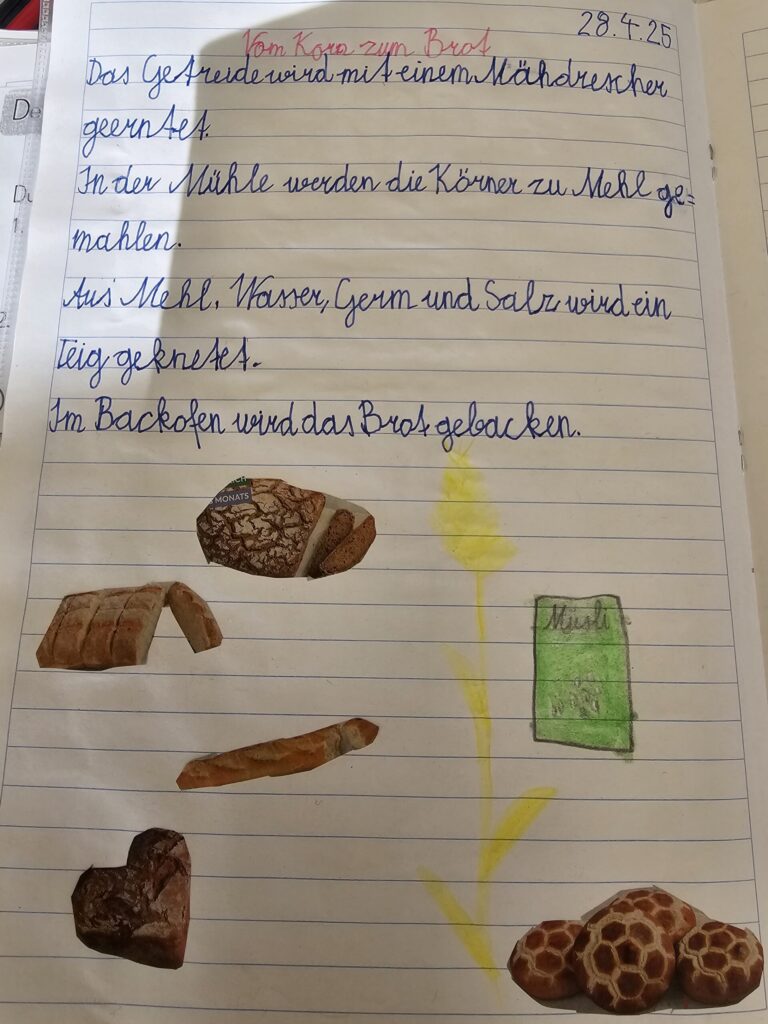 28.4.25
Vom Korn zum Brot
Das Getreide wird mit einem Mähdrescher
geerntet.
In der Mühle werden die Körner zu Mehl ge=
mahlen.
Aus Mehl, Wasser, Germ und Salz wird ein
Teig geknetet.
Im Backofen wird das Brot gebacken.
MONATS
Müsli